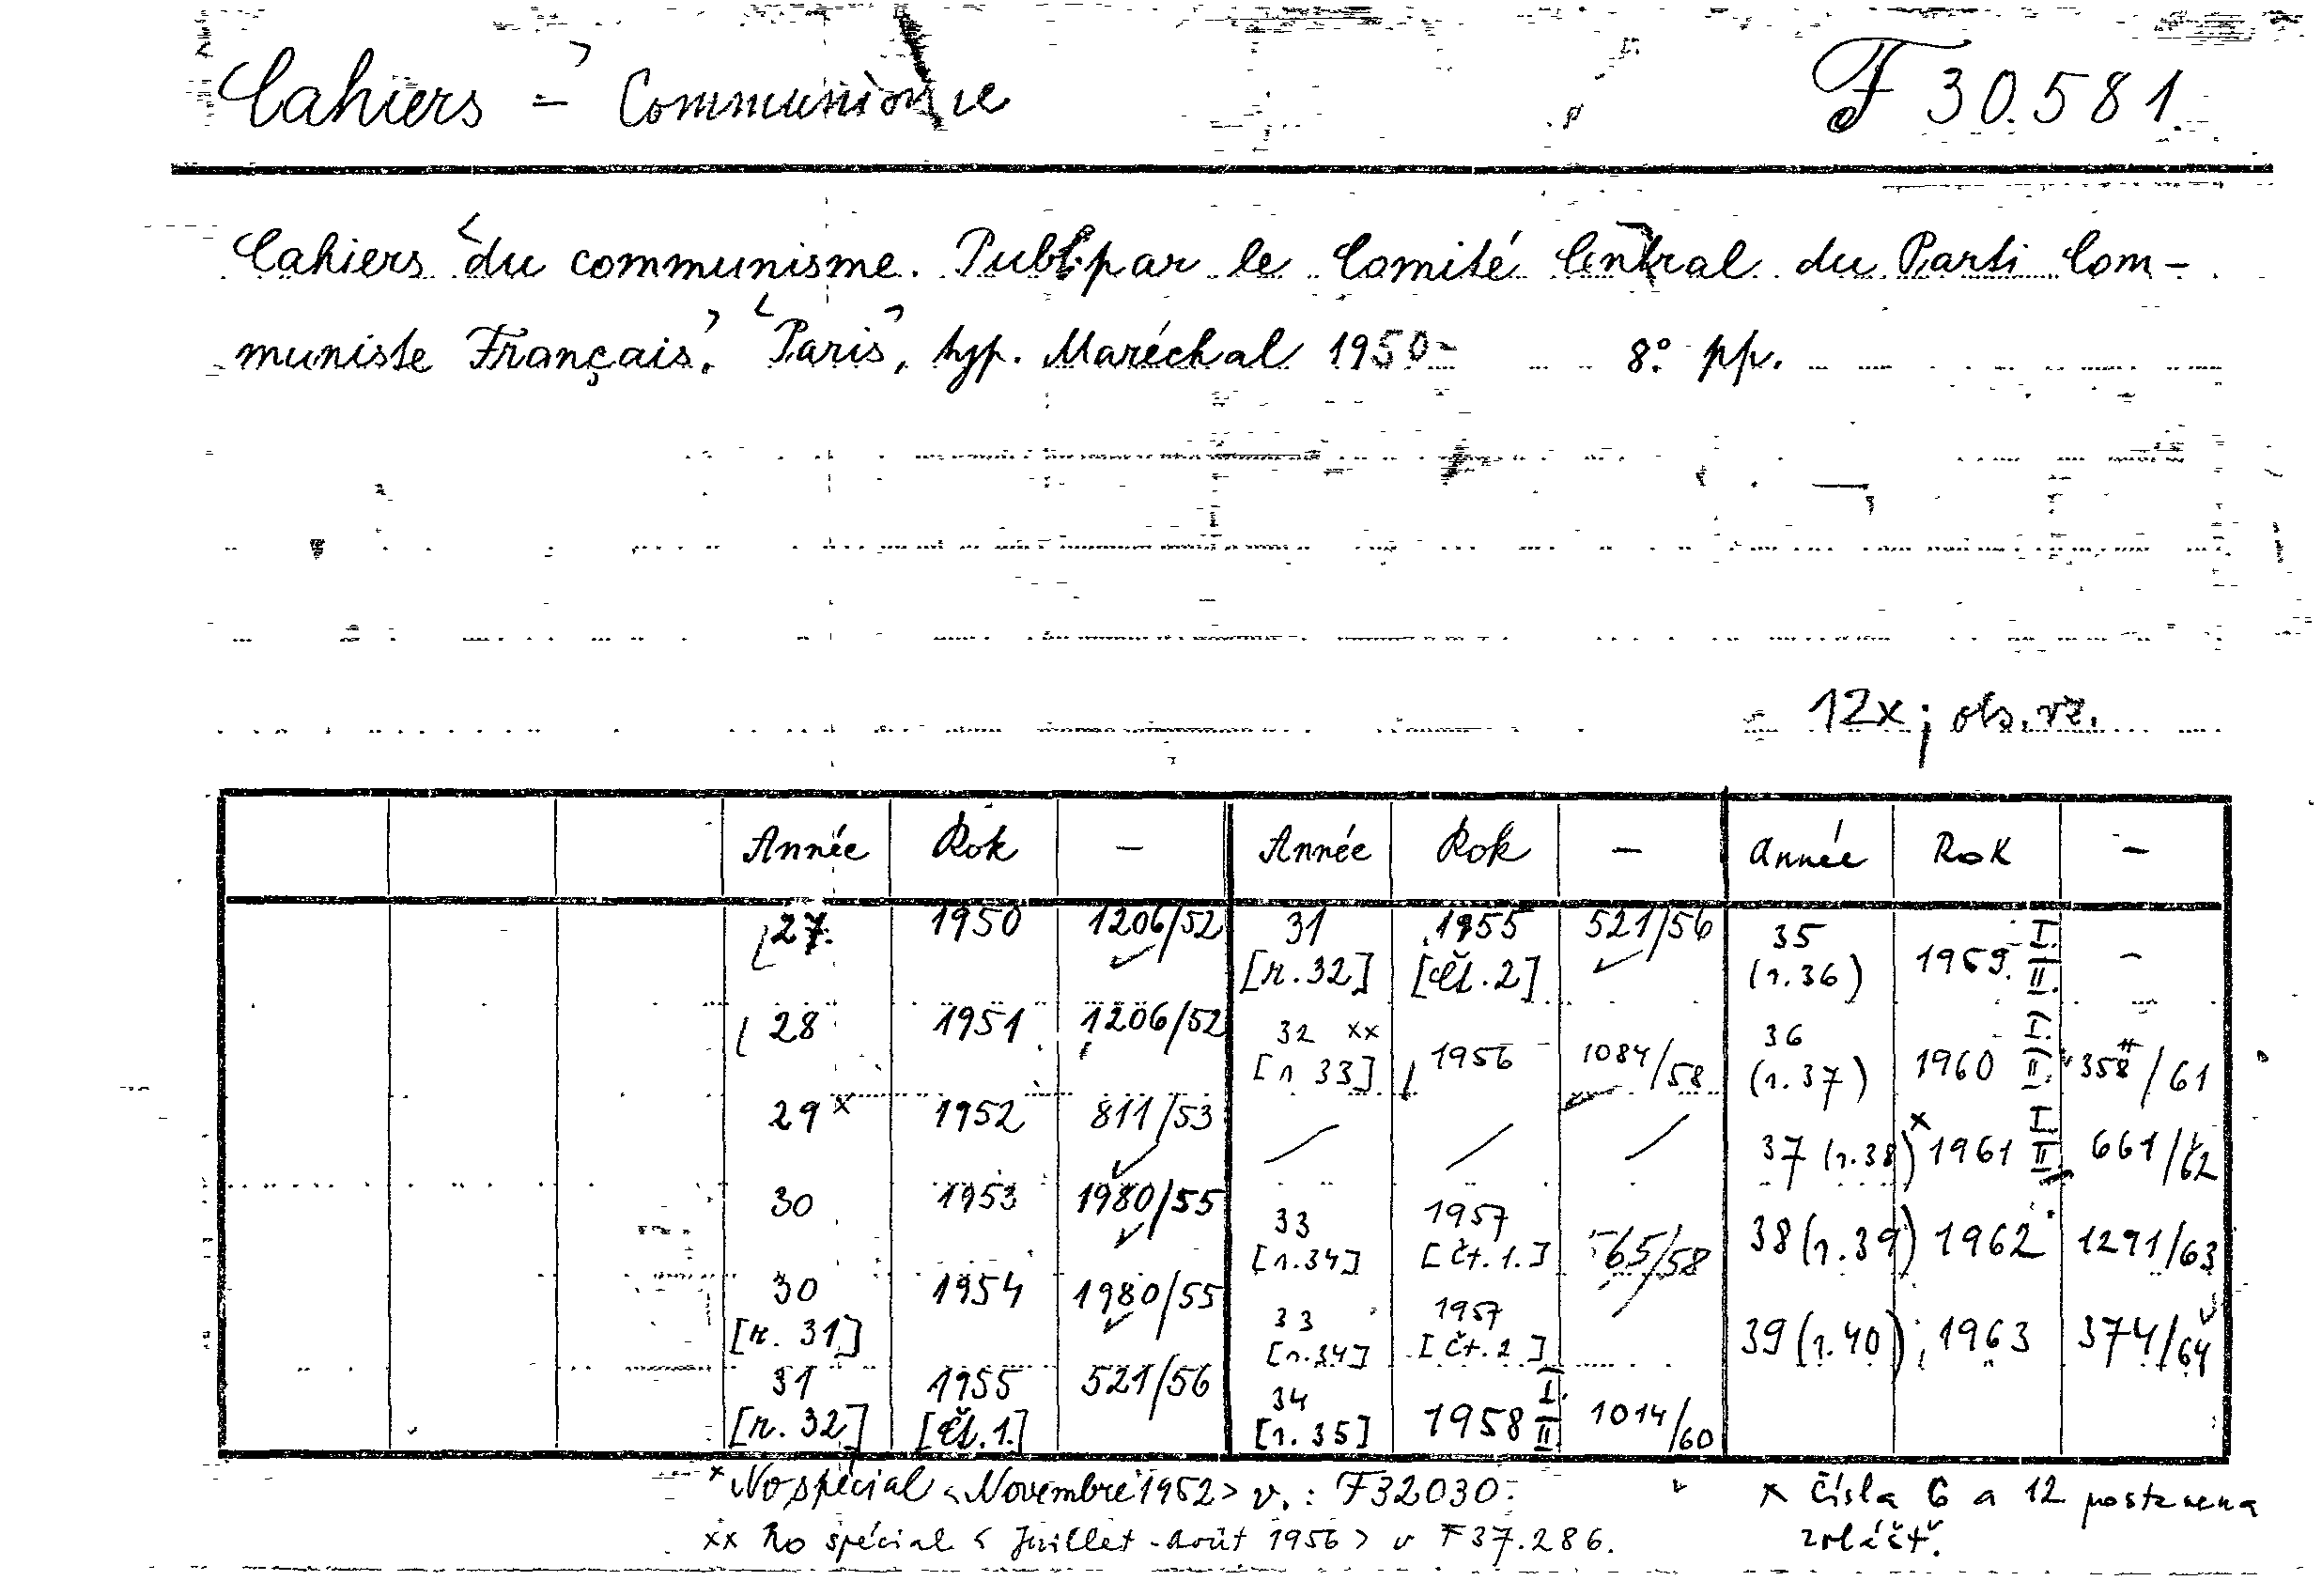 Cahiers - Communisme F 30.581
Cahiers du communisme. Publ. par le Comité Central du Parti Com-
muniste Français, Paris, typ. Maréchal 1950- 8° pp.
12x;
Année Rok — Année Rok — Année Rok —
27. 1950 1206/52 31 [r.32] 1955 [čt.2] 521/56 35 (r.36) 1959 I. II. —
28 1951 1206/52 32 xx [r 33] 1956 1084/58 36 (r.37) 1960 I) II) 358/61
29 x 1952 811/53 37 (r.38) x 1961 I. II. 661/62
30 1953 1980/55 33 [r.34] 1957 [čt.1.] 65/58 38 (r.39) 1962 1291/63
30 [r. 31] 1954 1980/55 33 [r.34] 1957 [čt.2] 39 (r.40) 1963 374/64
31 [r. 32] 1955 [čt.1.] 521/56 34 [r.35] 1958 I. II. 1014/60
x No spécial <Novembre 1952> v.: F32030. x čísla 6 a 12
xx No spécial < Juillet-Août 1956 > v F37.286. zvlášť.